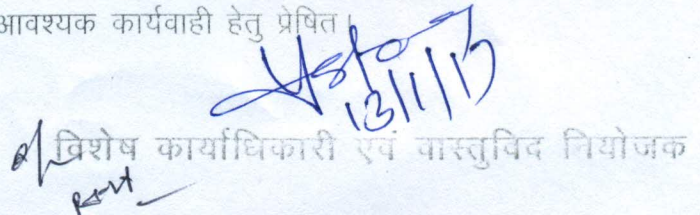 आवश्यक कार्यवाही हेतु प्रेषित।
13/1/17
विशेष कार्याधिकारी एवं वास्तुविद नियोजक